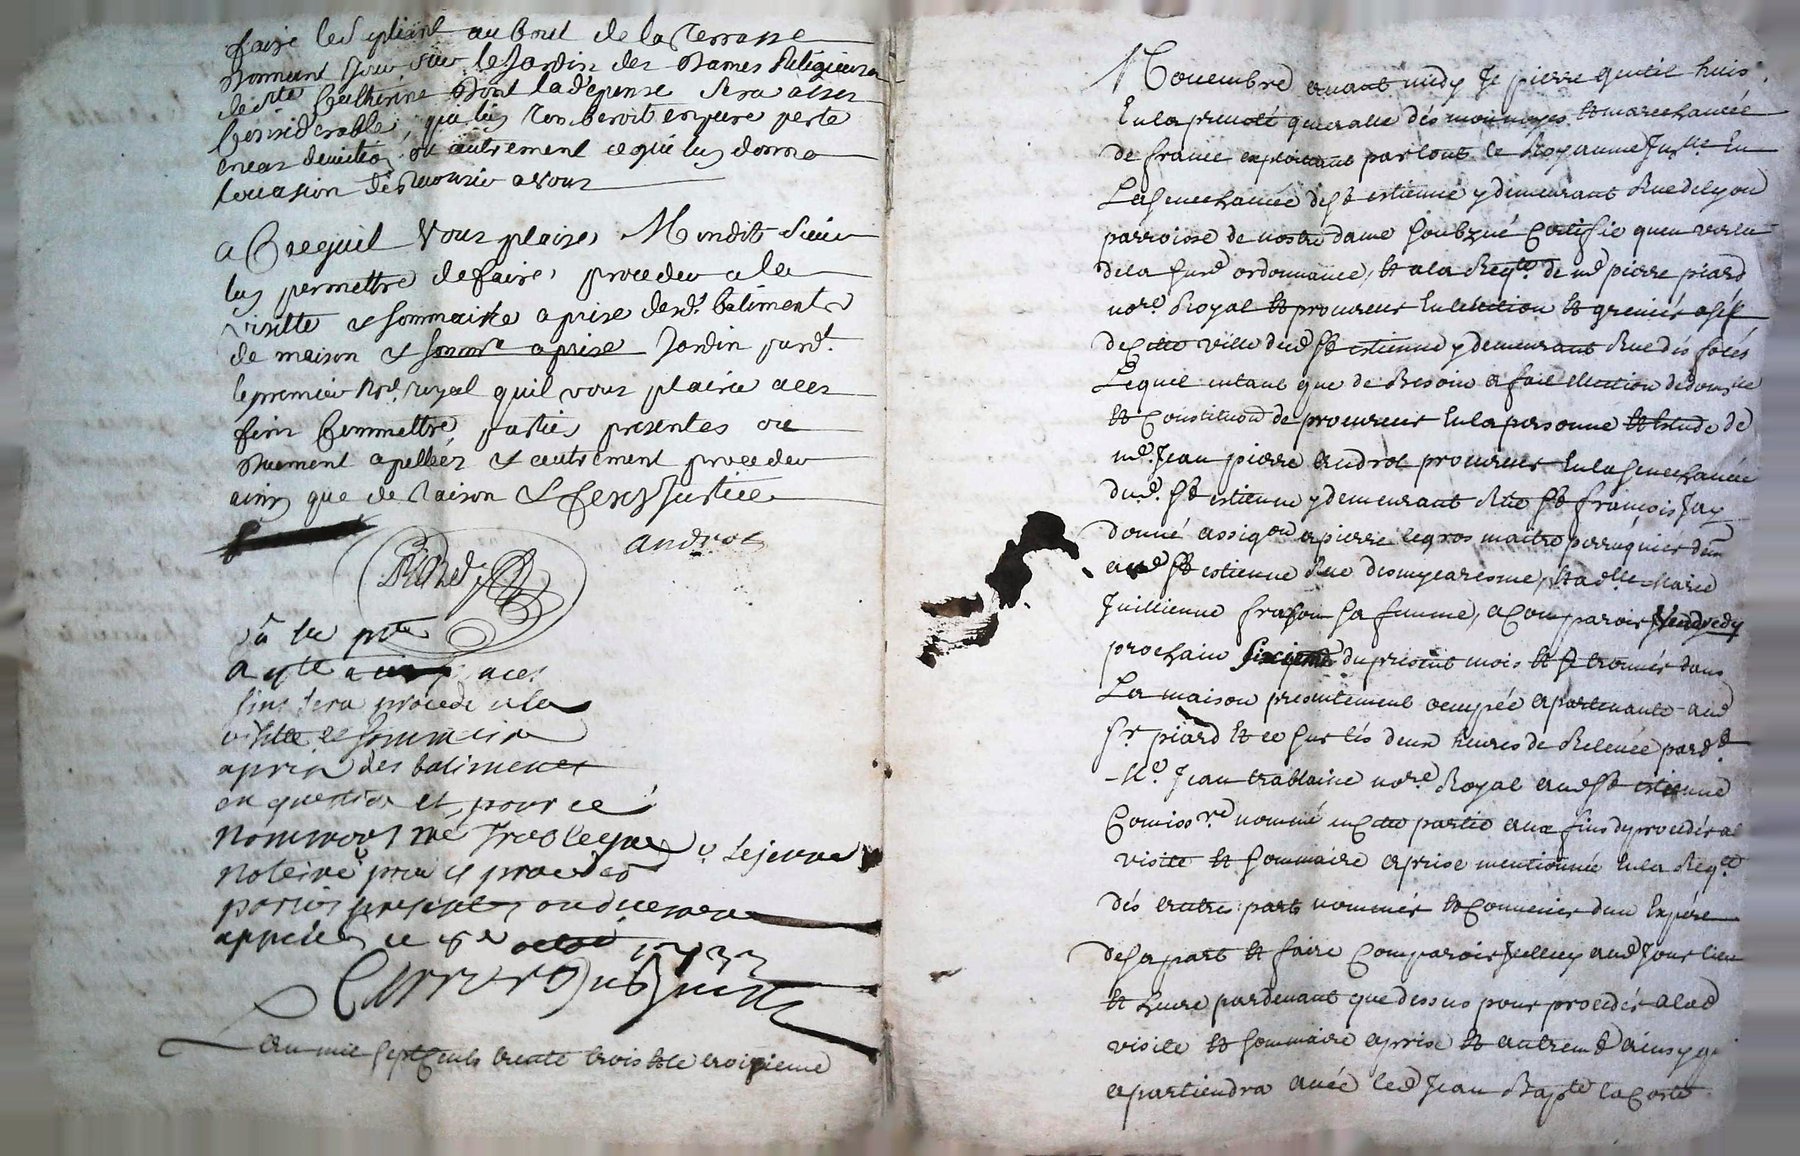 faire led. pliant au bout de la Terrasse
donnant Jour sur le Jardin des Dames Religieuses
de Ste Catherine dont la dépense sera asses
Considerable, qui luy tomberoit en pure perte
en cas deviction ou autrement ce qui luy donne
loccasion de recourir a vous
a Ce quil Vous plaise Mondit Sieur
luy permettre de faire proceder a la
visitte & sommaire aprise desd. batiments
de maison & Jardin pard.t
le premier No.re royal quil vous plaira a ces
fins Commettre parties presentes ou
duement apellées & autrement proceder
ainsy que de raison & ferez Justice
androt
Piard
Vû la pnte
Requete a ces
fins sera procedé a la
visitte et sommaire
aprise des batiments
en question et pour ce
nommons me Trablaine le jeune
notaire pour y proceder
parties presentes ou duement
appellées ce 1733
Lan mil sept Cents trente trois & le troizieme
Novembre avant midy Je pierre gentil huis.
En la preuoté generalle dés monnoyes & marechaucée
de france exploitant par tout le Royaume Jm.lle En
La Senechaucée de St estienne y demeurant Rue de lyon
parroisse de nostre dame Soubzné Certifie quen vertu
de la susd. ordonnance, & a la Req.te de me pierre piard
no.re Royal & procureur En election & grenier a sel
de Cette ville dud. St estienne y demeurant Rue dés fossés
Lequel entant que de Besoin a fait election de domicile
& Constitution de procureur En la personne & Etude de
me. Jean pierre androt procureur En la Senechaucée
dud. St estienne y demeurant Rue St francois Jay
donné assig.on a pierre legros maitre perruquier dem.t
aud. St estienne Rue & a d.lle Marie
Juillienne sa femme, a Comparoir Vendredy
prochain Sixieme du present mois & se trouver dans
La maison presentement occupée apartenante aud.
Sr. piard & ce sur lés deux heures de Relevée pard.t
Me. Jean trablaine no.re Royal aud. St estienne
Comiss.re nommé en Cette partie aux fins dy proceder a
visite & Sommaire aprise mentionnée En la Req.te
dés autres parts nommer & Convenir dun Expert
de Sa part & faire Comparoir Jcelluy aud. Jour lieu
& heure pardevant que dessus pour proceder a lad.
visite & Sommaire aprise & autrem.t ainsy qu
apartiendra avec led. Jean Bapte la Coste